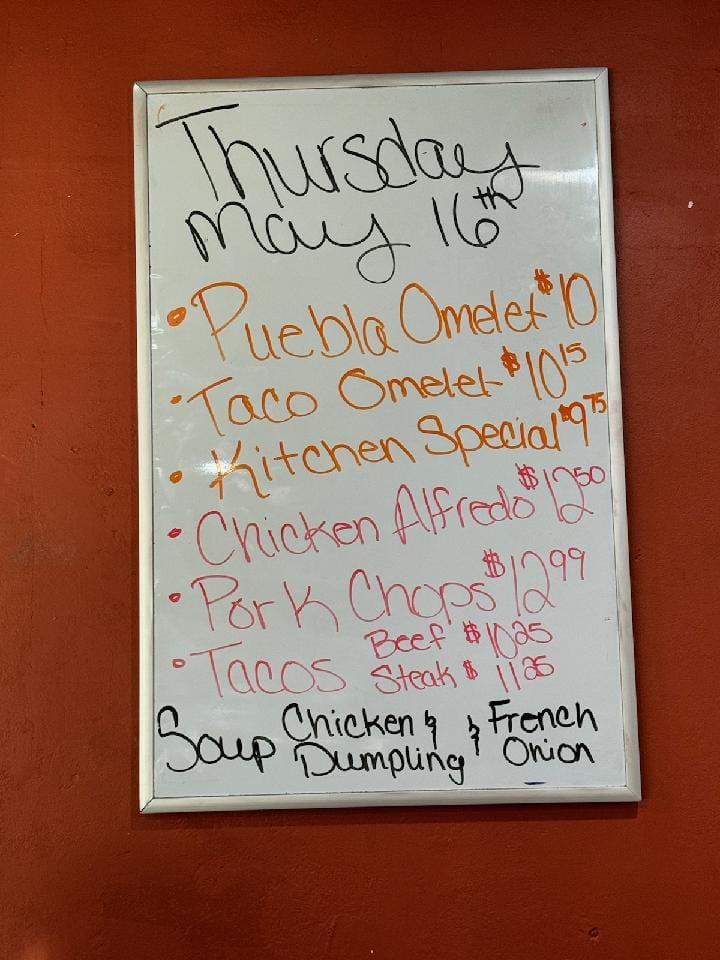 Thursday
May 16th
• Puebla Omelet $10
• Taco Omelet $10 15
• Kitchen Special $9 75
• Chicken Alfredo $12 50
• Pork Chops $12 99
• Tacos Beef $10 25
Steak $11 25
Soup Chicken & & French
Dumpling Onion